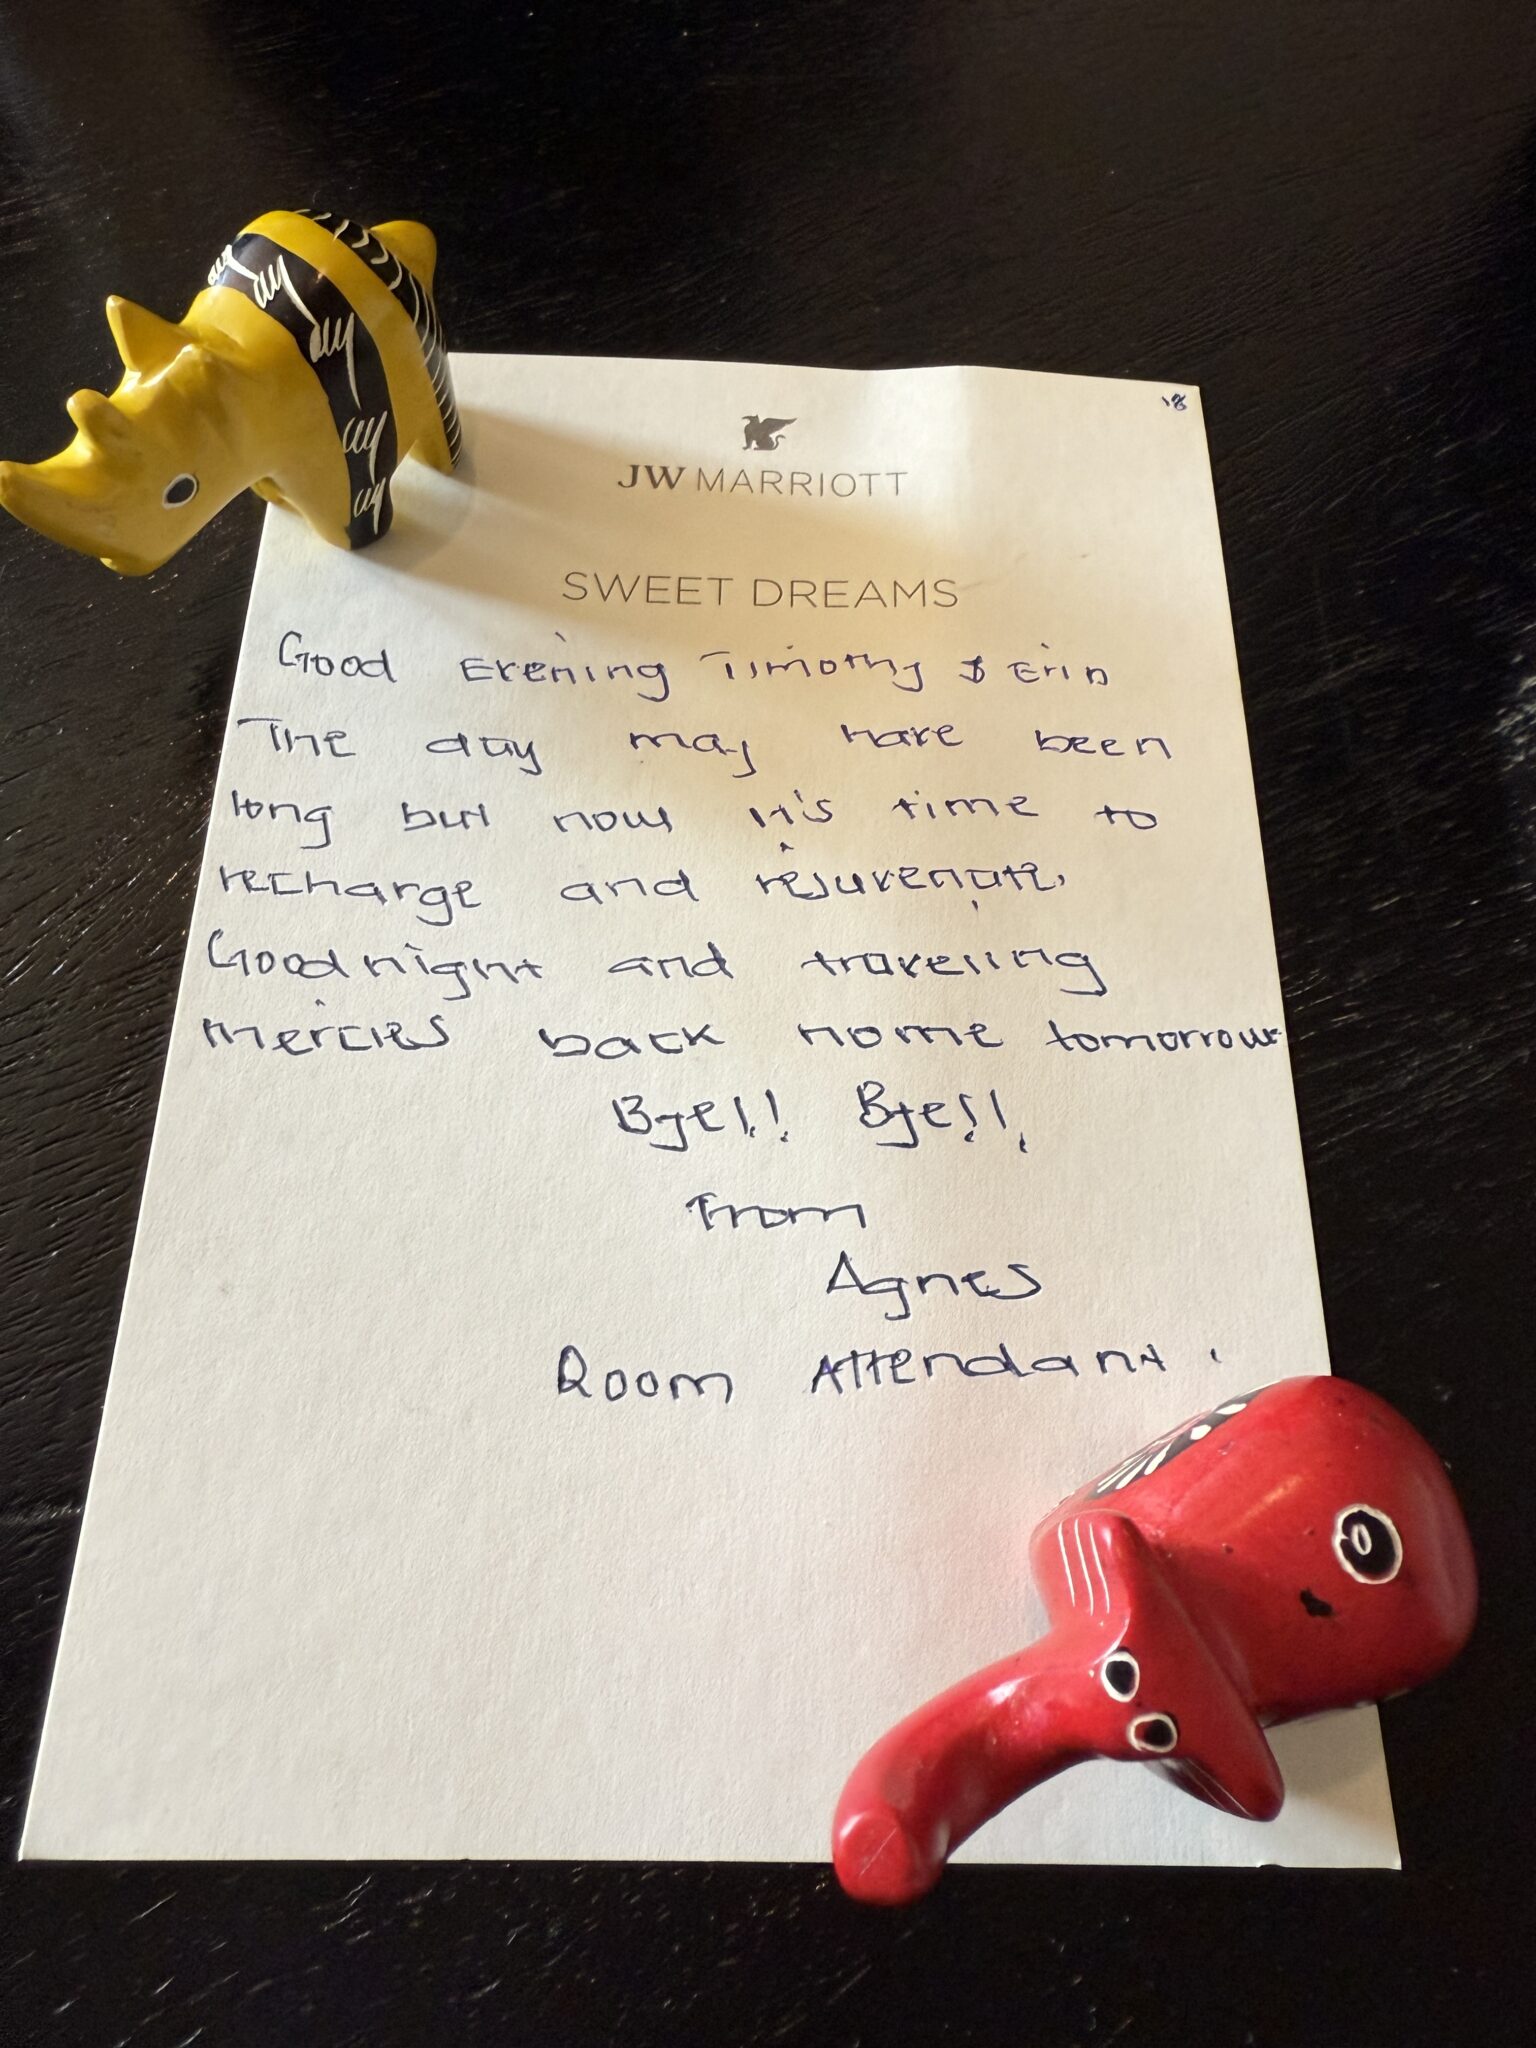 18
JW MARRIOTT
SWEET DREAMS
Good Evening Timothy & Erin
The day may have been
long but now it's time to
recharge and rejuvenate.
Goodnight and traveling
mercies back home tomorrow
Bye!! Bye!!
From
Agnes
Room Attendant.